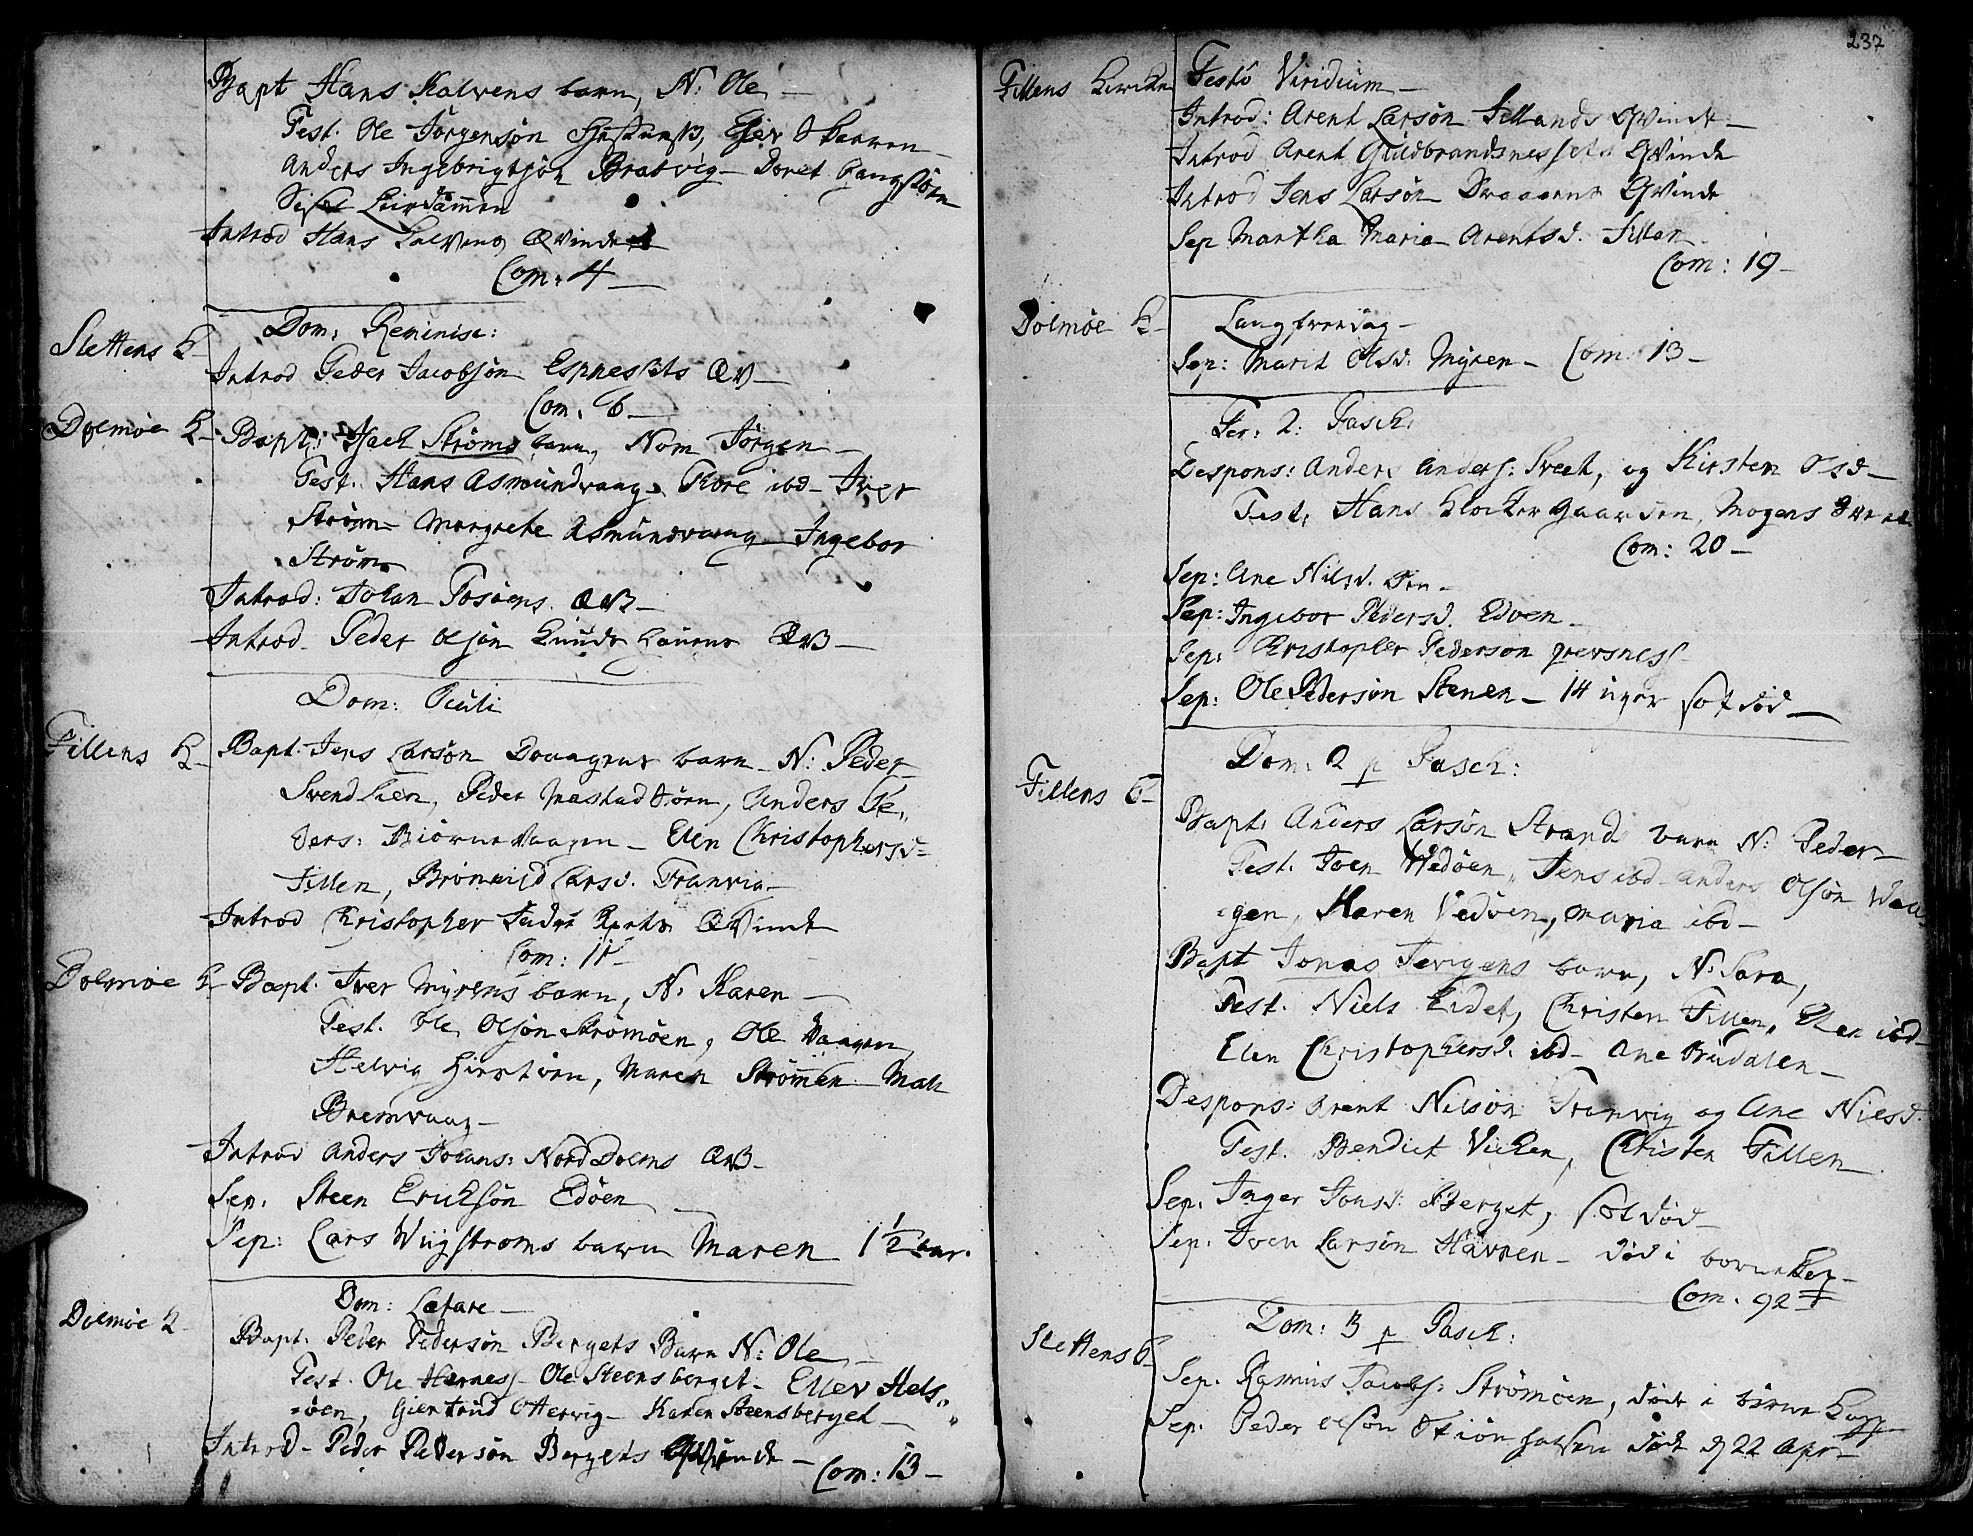 Bapt Hans Kalvens barn, N: Ole –
Test. Ole Jörgensön
Anders Ingebrigtsön Bratvig – Doret
Sisel Leirdammen
Introd Hans Kalvens Qvinde
Com: 4 –
Dom: Reminisc:
Slettens K–
Introd Peder Jacobsön Espnesets QV –
Com. 6 –
Dolmöe K– Bapt: Ströms barn, Nom Jörgen –
Test. Hans Asmundvaag, Thore ibd – Iver
Ström – Margrete Asmundvaag – Ingebor
Ström
Introd: Johan Tosöens QV –
Introd. Peder Olsön QV –
Dom: Oculi
Fillens K– Bapt. Jens Larsön barn – N: Peder
Svend, Peder, Anders Pe,,
ders: Biörnevaagen – Elen Christophersd =
Fillen, Larsd. Tranvig –
Introd Christopher Qvinde
Com: 11
Dolmöe K Bapt. Iver Myrens barn, N. Karen –
Test. Ole Olsön Strömöen, Ole Vaagen
Helvig, Maren Strömmen
Bremvaag –
Introd Anders Johans: Nord Dolms QV –
Sep. Steen Ericksön Edöen
Sep: Lars Wugströms barn Maren 1½ aar.
Dom: Lætare –
Dolmöe K
Bapt. Peder Pedersön Bergets Barn N: Ole –
Test. Ole Hernes – Ole Steensberget – Ellev Hels,,
,,öen, Giertrud Ottervig – Karen Steensberget –
Introd – Peder Pedersön Bergets Qvinde –
Com: 13 –
237
Fillens Kircke Festo Viridium –
Introd: Arent Larsön Fillands Qvinde –
Introd Arent Guldbrandsnessets Qvinde
Introd Jens Larsön Qvinde
Sep Martha Maria Arentsd. Fillen
Com: 19 –
Dolmöe K– Langfredag –
Sep: Marit Olsd: Myren – Com: 13 –
Fer: 2: Pasch:
Despons: Anders Anders: Sveet, og Kirsten Olsd –
Test, Hans Klockergaarden, Mogens
Com: 20 –
Sep: Ane Nilsd.
Sep: Ingebor Pedersd. Edöen –
Sep: Christopher Pedersön
Sep: Ole Pedersön Stenen – 14 uger sot död –
Dom: 2 p Pasch:
Fillens K–
Bapt: Anders Larsön Strands barn N: Peder –
Test. Joen Wedöen, Jens ibd – Anders Olsön Waa,,
,,gen, Karen Vedöen, Maria ibd –
Bapt Jonas barn, N: Sara,
Test. Niels Eidet, Christen Fillen, Elen ibd –
Elen Christophersd. ibd – Ane Brudalen –
Despons: Arent Nilsön Tranvig og Ane Nielsd.
Test. Bendict Vicken, Christen Fillen
Sep. Inger Jonsd: Berget, sot död –
Sep. Iver Larsön Havnen – död i
Com. 92
Dom: 3 p Pasch:
Slettens K–
Sep. Rasmus Jacobs: Strömöen, död i
Sep. Peder Olsön död d 22 Apr –